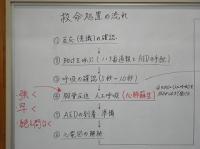 救命処置の流れ
① 反応(意識)の確認
② 助けを呼ぶ(119番通報とAEDの手配)
③ 呼吸の確認(5秒~10秒)
④ 胸骨圧迫 人工呼吸(心肺蘇生)
⑤ AEDの到着 準備
⑥ 心電図の解析
強く
早く
絶え間なく